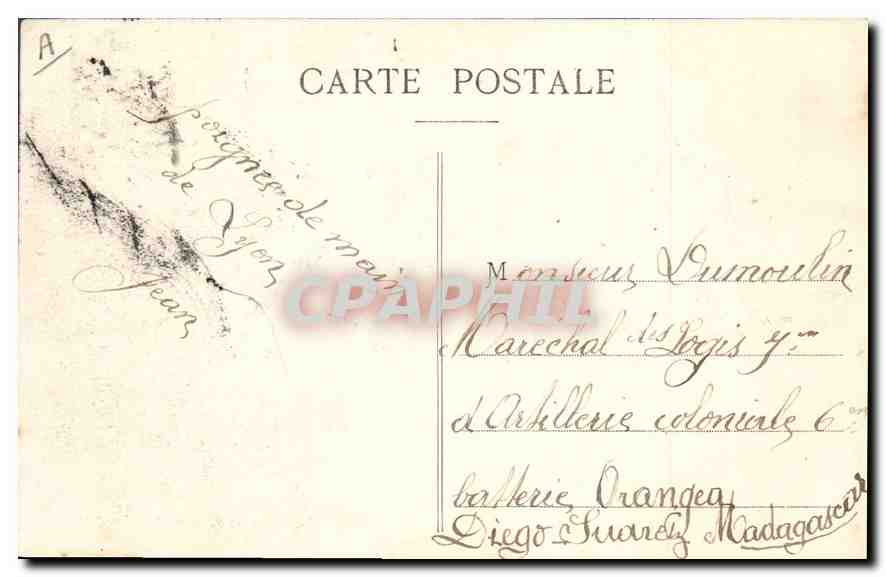 A
CARTE POSTALE
Poignée de main
de Lyon
Jean
Monsieur Dumoulin
Marechal des Logis 7me
d'Artillerie coloniale 6em
batterie Orangea
Diego Suarez Madagascar
CPAPHIL